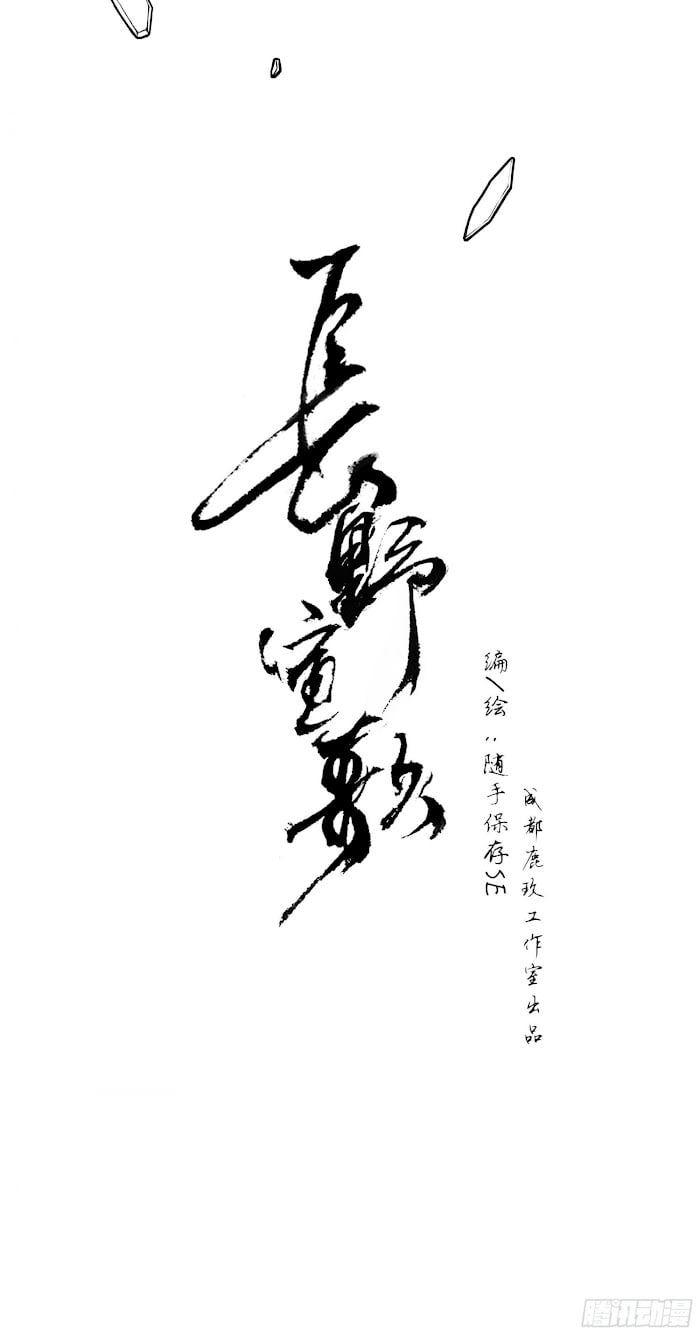 長野宣歌
编/绘：随手保存SE
成都鹿玖工作室出品
腾讯动漫